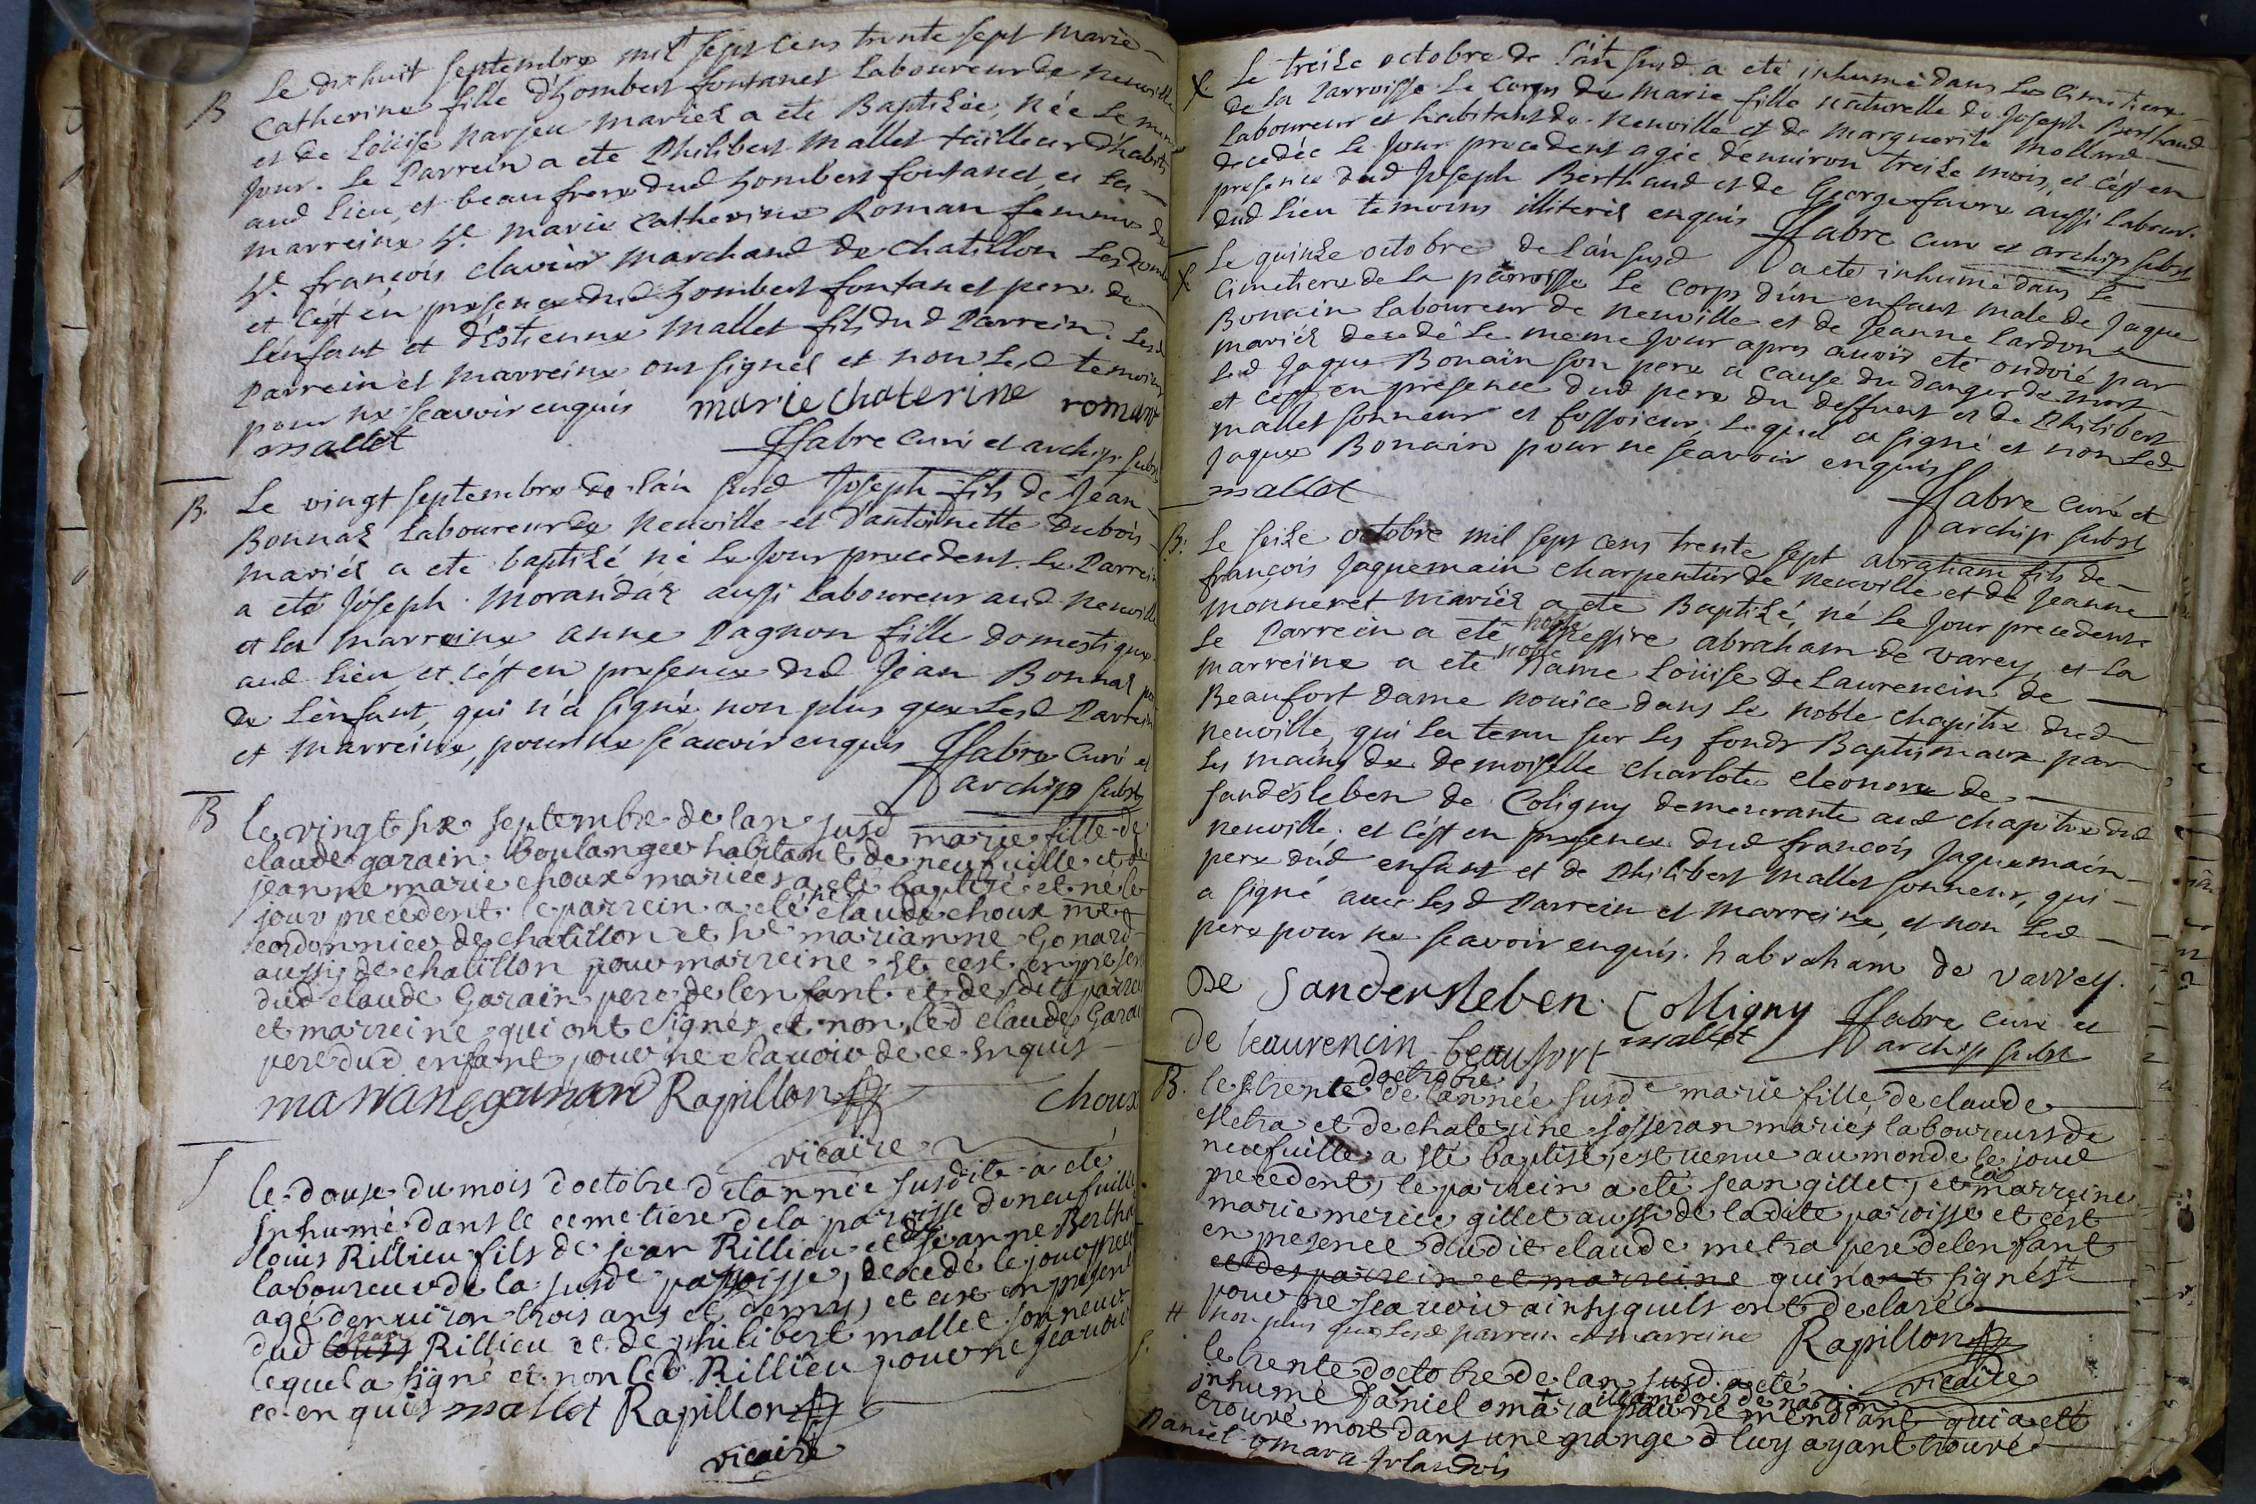 B
Le dix huit septembre mil sept cens trente sept Marie
Catherine fille d'hombert fontanet Laboureur de neuville
et de Loüise narjeu mariés a eté Baptisée, née le meme
jour. Le Parrein a eté Philibert Mallet tailleur d'habits
aud lieu, et beaufrere dud hombert fontanet, et la
marreine he. marie catherine Roman femme de
hr. françois clavier marchand de Chatillon
et c'est en presence dud hombert fontanet pere de
L'enfant et d'Estienne Mallet fils dud Parrein. Lesd
Parrein et Marreine ont signés et non lesd temoins
pour ne sçavoir enquis marie chaterine romant
mallet ffabre Curé et archip. subst
B.
Le vingt septembre de l'an susd Joseph fils de Jean
Bonnaz Laboureur de Neuville et d'antoinette Dubois
mariés a eté baptizé né le jour precedent. Le Parrein
a eté Joseph Morandaz aussi Laboureur aud Neuville
et la marreine anne Pagnon fille domestique
aud lieu et c'est en presence dud Jean Bonnaz pere
de l'enfant, qui n'a signé non plus que lesd Parrein
et Marreine, pour ne sçavoir enquis ffabre Curé et
archip subst
B
le vingt six septembre de lan susd marie fille de
claude garain boulanger habitant de neufuille et de
jeanne marie choux mariees a eté baptizé et né le
jour precedent. le parrein a eté hr claude choux me
cordonnier de chatillon et he marianne Gonard
aussi de chatillon pour marreine. et cest en presence
dud claude Garain pere de lenfant et desdits parrein
et marreine qui ont signés et non led claude Garain
pere dud enfant pour ne scauoir de ce enquis
mariane gounard Rapillon choux
vicaire
S
le douse du mois doctobre de lannée susdite a eté
inhumé dans le cemetiere de la paroisse de neufuille
louis Rillieu fils de jean Rillieu et de jeanne Bertha
laboureur de la susde paroisse, decedé le jour preced
agé denuiron trois ans et demy, et cest en presence
dud louis jean Rillieu et de philibert mallet sonneur
lequel a signé et non led Rillieu pour ne scauoir
ce enquis mallet Rapillon
vicaire
X
Le treize octobre de l'an susd. a eté inhumé dans le cimetiere
de la Parroisse le corps de Marie fille naturelle de Joseph Berthaud
Laboureur et habitant de Neuville et de Marguerite Mollard
decedée le jour precedent agée d'environ treize mois, et c'est en
presence dud Joseph Berthaud et de George favre aussi Labour.
dud lieu temoins illiterés enquis ffabre Curé et archip subst
X
Le quinze octobre de l'an susd a eté inhumé dans le
Cimetiere de la parroisse le corps d'un enfant male de Jaque
Bonain laboureur de neuville et de Jeanne Lardon
mariés decedé le meme jour apres avoir eté ondoié par
led Jaque Bonain son pere a cause du danger de mort
et c'est en presence dud pere du deffunt et de Philibert
mallet sonneur et fossoieur lequel a signé et non led
Jaque Bonain pour ne sçavoir enquis
mallet ffabre Curé et
archip subst
B:
Le seize octobre mil sept cens trente sept abraham fils de
françois Jaquemain charpentier de Neuville et de Jeanne
Monneret mariés a eté Baptizé, né le jour precedent.
Le Parrein a eté noble Messire abraham de varey, et la
marreine a eté noble Dame Loüise De Laurencin de
Beaufort Dame novice dans le noble chapitre dud
neuville, qui l'a tenu sur les fonds Baptismaux par
les mains de demoiselle charlote eleonore de
sandésleben de Coligny demeurante aud chapitre dud
Neuville. et c'est en presence dud françois Jaquemain
pere dud enfant et de Philibert Mallet sonneur, qui
a signé avec lesd Parrein et Marreine, et non led
pere pour ne sçavoir enquis. habraham de varrey.
De Sandersleben Colligny
de Laurencin beaufort mallet ffabre Curé et
archip subst
B.
le trente doctobre de lannée susde marie fille de claude
Metra et de chaterine josseran mariés laboureurs de
neufuille a eté baptisé, est venue au monde le jour
precedent, le parrein a eté jean gillet, et la marreine
marie mercier gillet aussi de ladite paroisse et cest
en presence dudit claude metra pere de lenfant
et des parrein et marreine qui nont signés #
pour ne scauoir ainsy quils ont declaré
# non plus que lesd parrein et marreine Rapillon
vicaire
S.
le trente doctobre de lan susd. a eté
inhumé Daniel omara illandois de nation pauvre mendiant qui a eté
trouvé mort dans une grange d luy ayant trouvé
Daniel omara Irlandois